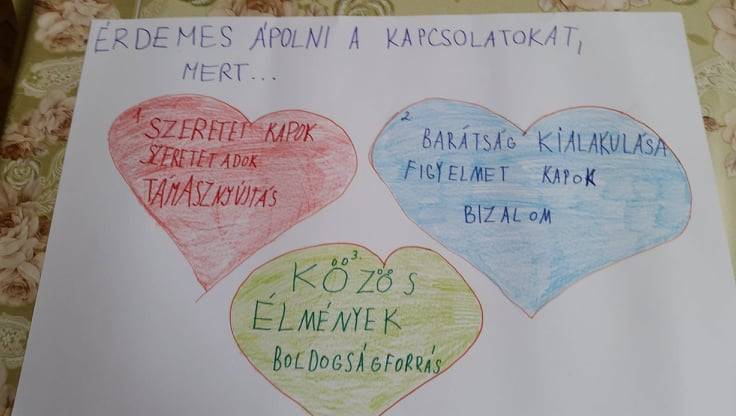 ÉRDEMES ÁPOLNI A KAPCSOLATOKAT,
MERT...
1
SZERETET KAPOK
SZERETET ADOK
TÁMASZNYÚJTÁS
2
BARÁTSÁG KIALAKULÁSA
FIGYELMET KAPOK
BIZALOM
3.
KÖZÖS
ÉLMÉNYEK
BOLDOGSÁGFORRÁS